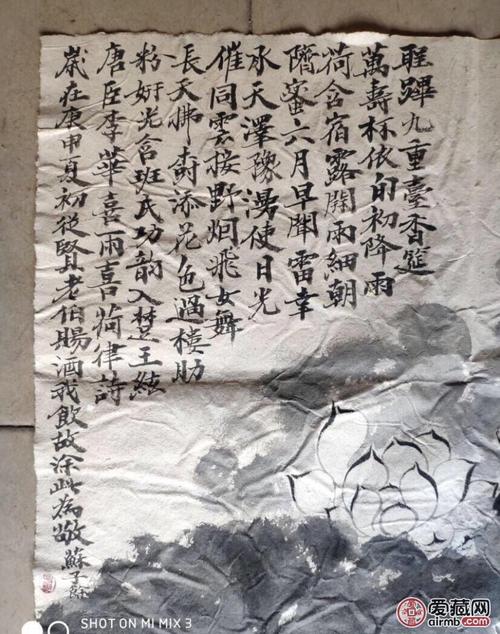 躔九重臺香筵
萬壽杯依旬初降雨
荷含宿露開雨細朝
隮蜜六月早聞雷幸
承天澤豫湯使日光
催同雲接野烟飛女舞
張天拂树添花色過樓助
粉妍光含班氏功韵入楚王絃
唐臣李華喜雨吉荷律詩
歲在庚申夏初從賢老伯賜酒我飲故涂此為敬蘇子
SHOT ON MI MIX 3
爱藏网
airmb.com